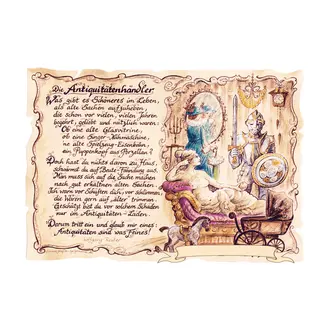 Die Antiquitätenhändler
Was gibt es Schöneres im Leben,
als alte Sachen aufzuheben,
die schon vor vielen, vielen Jahren
begehrt, geliebt und nützlich waren.
Ob eine alte Glasvitrine,
ob eine Singer-Nähmaschine,
ne alte Spielzeug-Eisenbahn,
ein Puppenkopf aus Porzellan?
Doch hast du nichts davon zu Haus,
schwärmst du auf Beute-Fandung aus.
Man muss sich auf die Suche machen
nach gut erhaltnen alten Sachen.
Ich warn vor Schuften dich, vor schlimmen,
die Waren gern auf „alter" trimmen.
Geschützt bist du vor solchem Schaden
nur im Antiquitäten-Laden.
Darum tritt ein und glaub mir eines:
Antiquitäten sind was Feines!